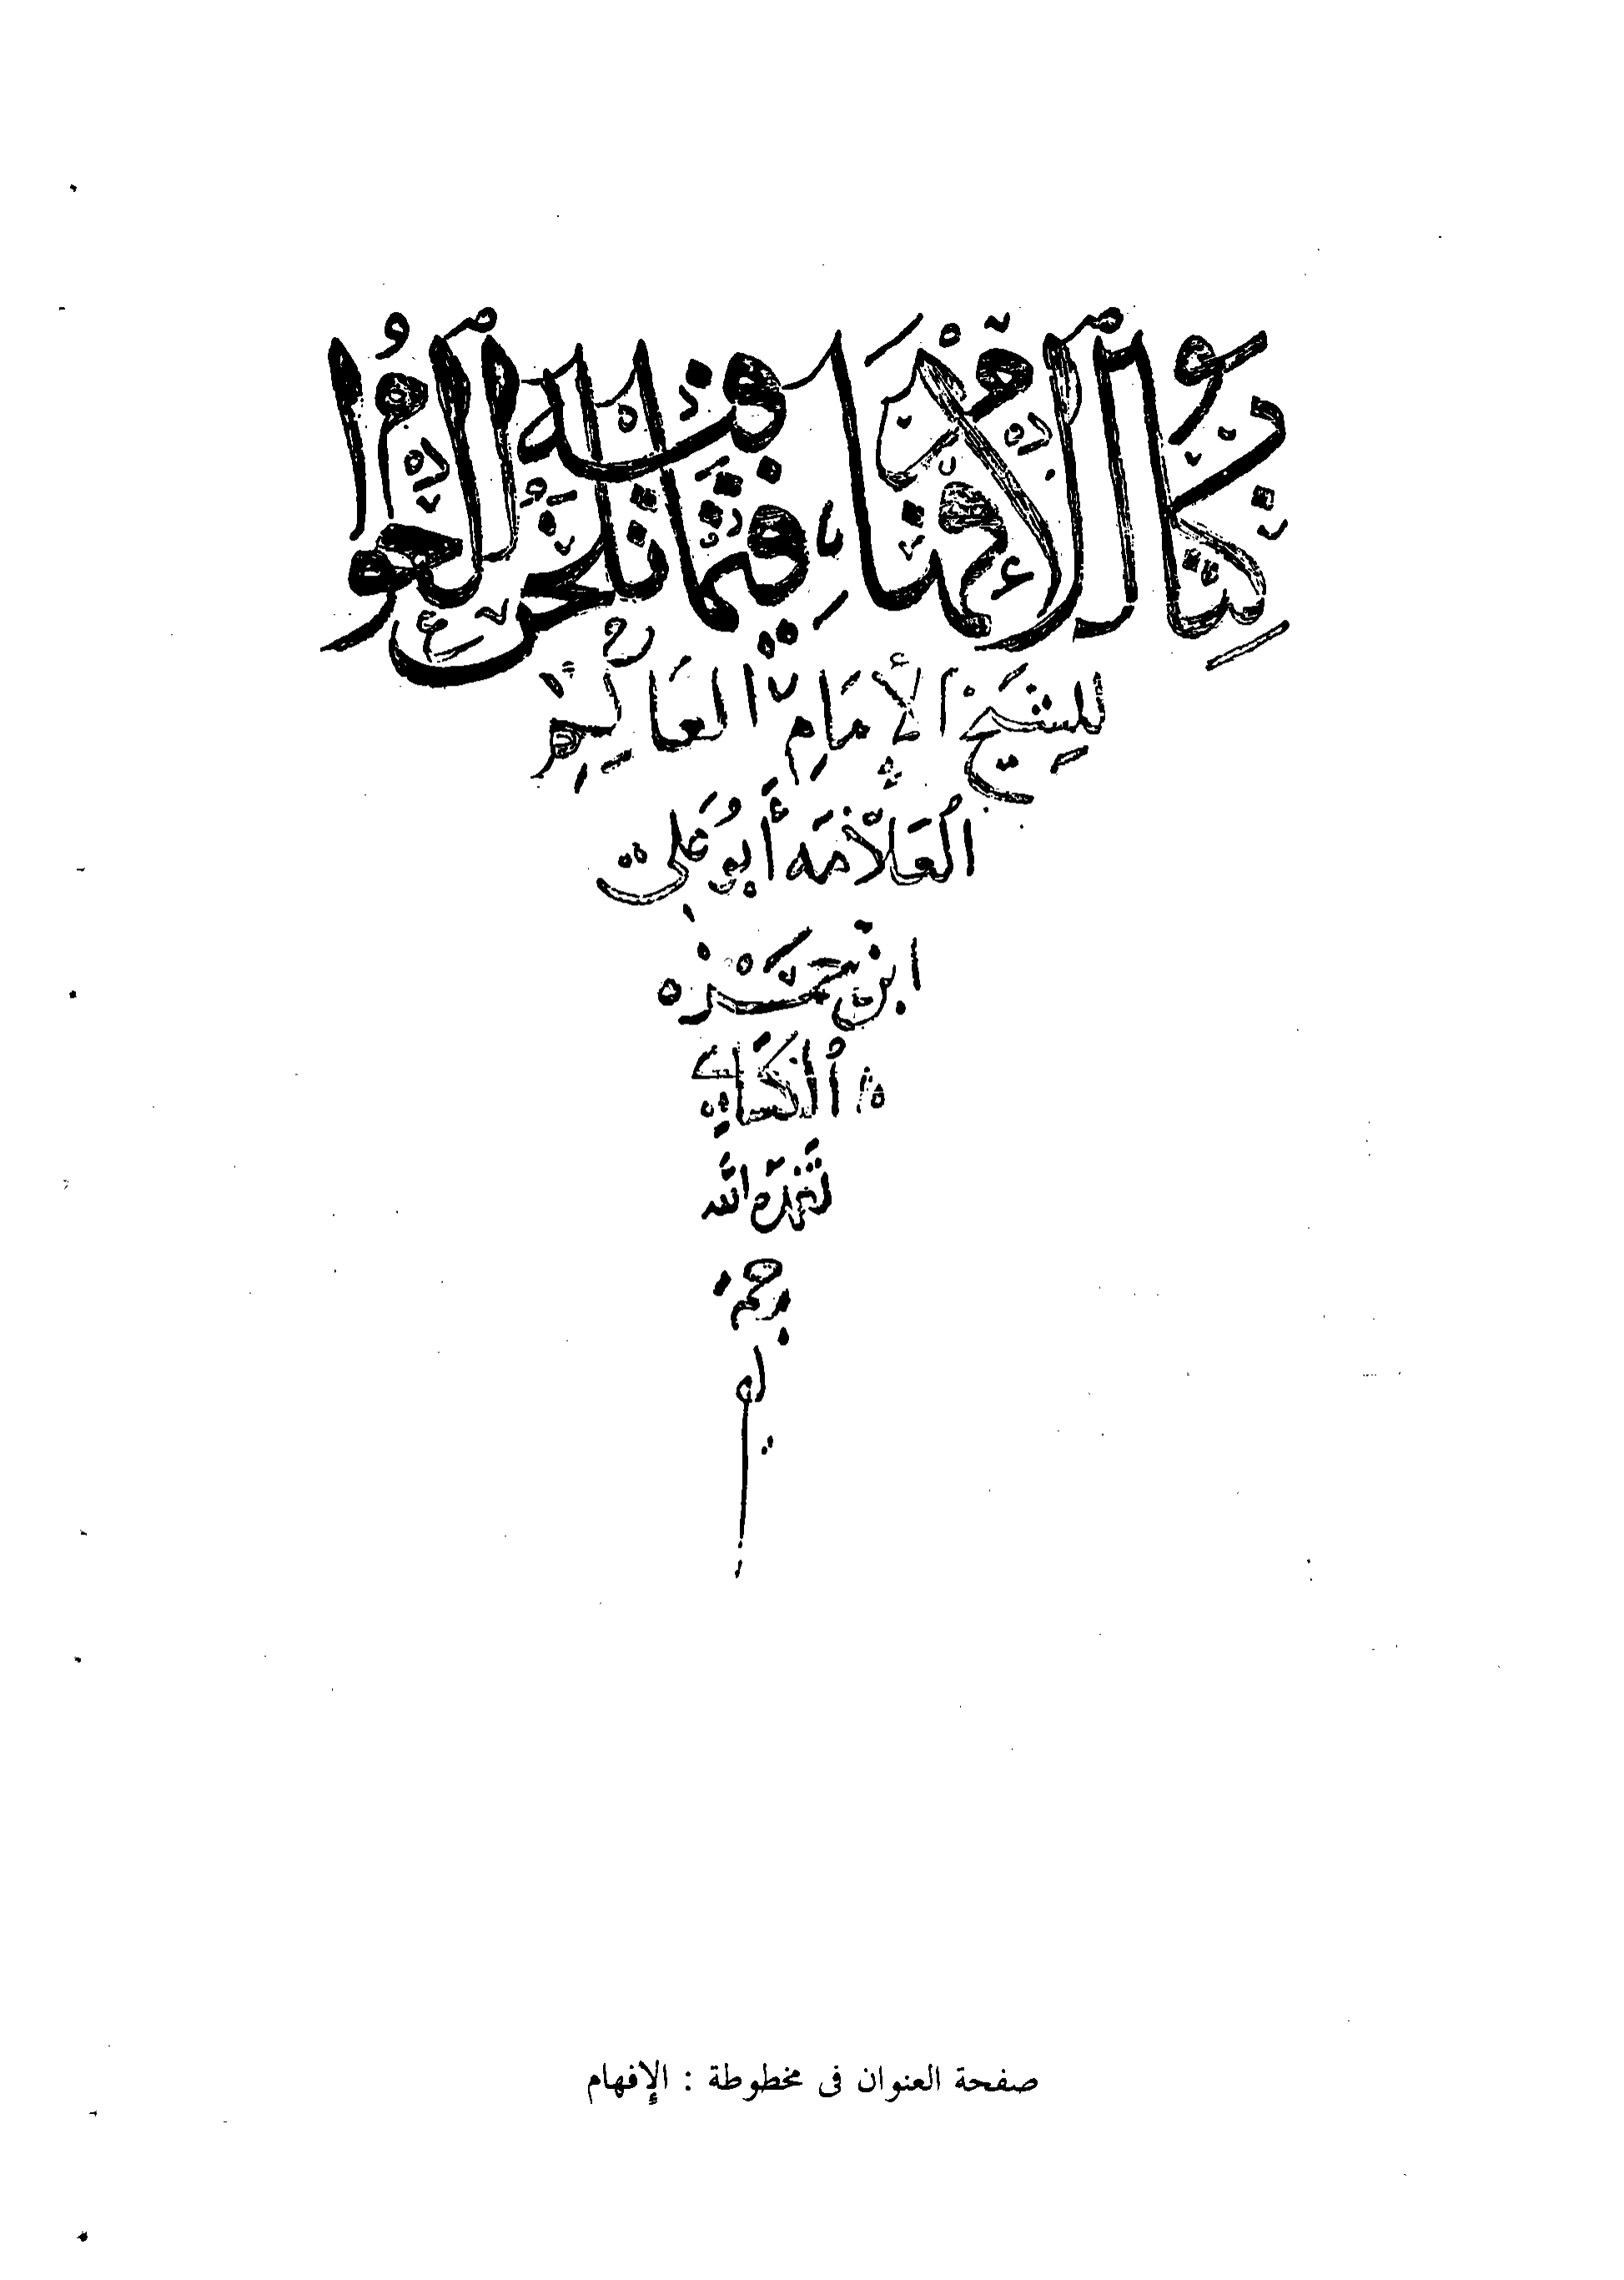 كتاب الإفهام فيما تلحن فيه العوام
للشيخ الإمام العالم
العلّامه أبو علي
ابن حمزه
الكسائي
تغمده الله
برحمته
صفحة العنوان فى مخطوطة : الإفهام